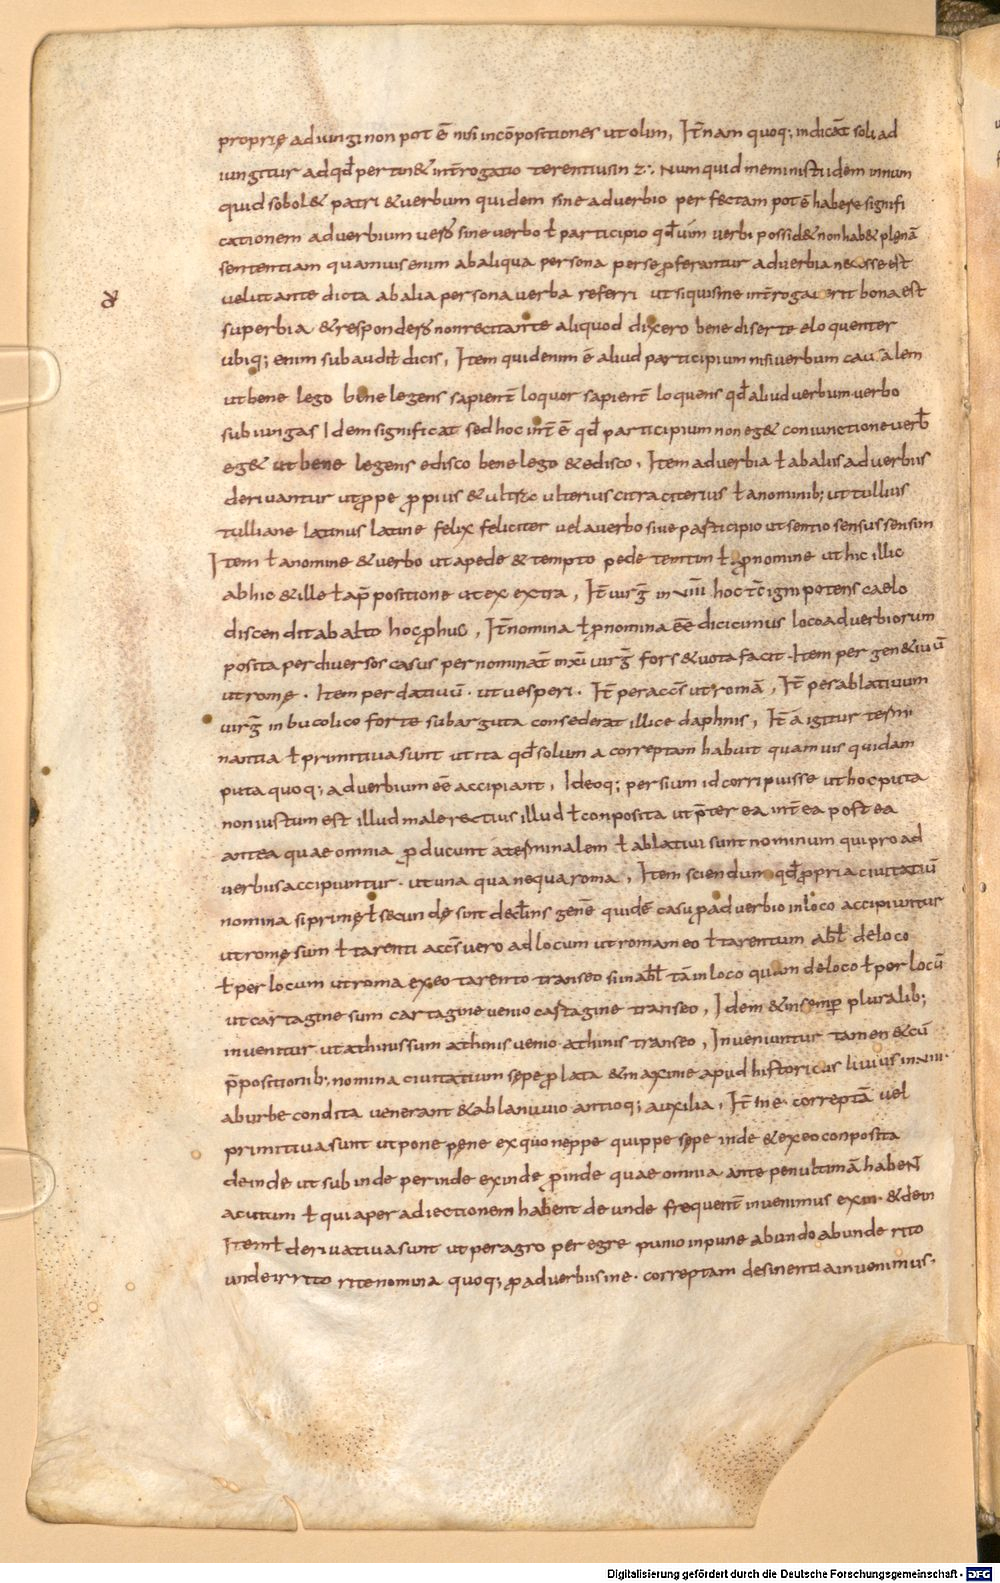 proprię adiungi non pot ē nisi incōpositiones ut olim, It̄ nam quoq; indicāt soli ad
iungitur ad qđ pertin& int̄rogatio terentius in
Numquid meministi idem
quid sobol& patri & verbum quidem sine adverbio perfectam pot ē habere signifi
cationem adverbium sine verbo ł participio qđ vim verbi possid& non hab& plenā
sententiam quamuis enim ab aliqua persona per se proferantur adverbia necesse est
velut ante dicta ab alia persona verba referri ut siquis me int̄rogaverit bona est
superbia & non recitante aliquod dixero bene diserte eloquenter
ubiq; enim subaudit dicis, Item quid enim ē aliud participium nisi verbum casualem
ut bene lego bene legens sapient̄ loquor sapient̄ loquens qđ aliud verbum verbo
subiungas Idem significat sed hoc int̄ ē qđ participium non eg& coniunctione verb
eg& ut bene legens edisco bene lego & edisco, Item adverbia ł ab aliis adverbiis
derivantur ut prope propius & ulterius citra citerius ł a nominib; ut tullius
tulliane latinus latine felix feliciter vel a verbo sive participio ut sentio sensus sensim
Item ł a nomine & verbo ut a pede & tempto pede temtim ł pronomine ut hic illic
ab hic & ille ł a p̄positione ut ex extra, It̄ virḡ in viiii hoc tc̄ ignipotens caelo
discendit ab alto
It̄ nomina ł pronomina eē dicimus loco adverbiorum
posita per diversos casus per nominat̄ in xi virḡ fors & vota facit. Item per gen&ivū
ut romę. Item per dativū. ut vesperi. It̄ per accs̄ ut romā, It̄ per ablativum
virḡ in bucolico forte sub arguta consederat ilice daphnis, It̄ a igitur termi
nantia ł primitiva sunt ut ita qđ solum a correptam habuit quamvis quidam
puta quoq; adverbium eē accipiant, Ideoq; persium id corripuisse ut hoc puta
non iustum est illud male rectius illud ł conposita ut p̄ter ea int̄ ea post ea
antea quae omnia producunt a terminalem ł ablativi sunt nominum qui pro ad
verbiis accipiuntur. ut una qua nequa roma, Item sciendum qđ propria civitatiū
nomina si primę ł secundę sint declīns genē quidē casu p adverbio in loco accipiuntur
ut romę sum ł tarenti accs̄ vero ad locum ut romam eo ł tarentum abł de loco
ł per locum ut roma exeo tarento transeo sin abł tā in loco quam de loco ł per locū
ut cartagine sum cartagine venio cartagine transeo, Idem & in semp pluralib;
invenitur ut athinis sum athinis venio athinis transeo, Inveniuntur tamen & cū
p̄positionib; nomina civitatium sępe prolata & maxime apud historicus livius in
ab urbe condita venerant & ab lanuvio antioq; auxilia, It̄ in e. correptā vel
primitiva sunt ut pone pęne ex quo neppe quippe sępe inde & ex eo conposita
deinde ut subinde perinde exinde proinde quae omnia ante penultimā habent
acutum ł quia per adiectionem habent de unde frequent̄ invenimus exin. & dein
Item ł derivativa sunt ut peragro peregre punio inpune abundo abunde rito
unde irrito rite nomina quoq; pro adverbiis in e. correptam desinentia invenimus.
Digitalisierung gefördert durch die Deutsche Forschungsgemeinschaft - DFG